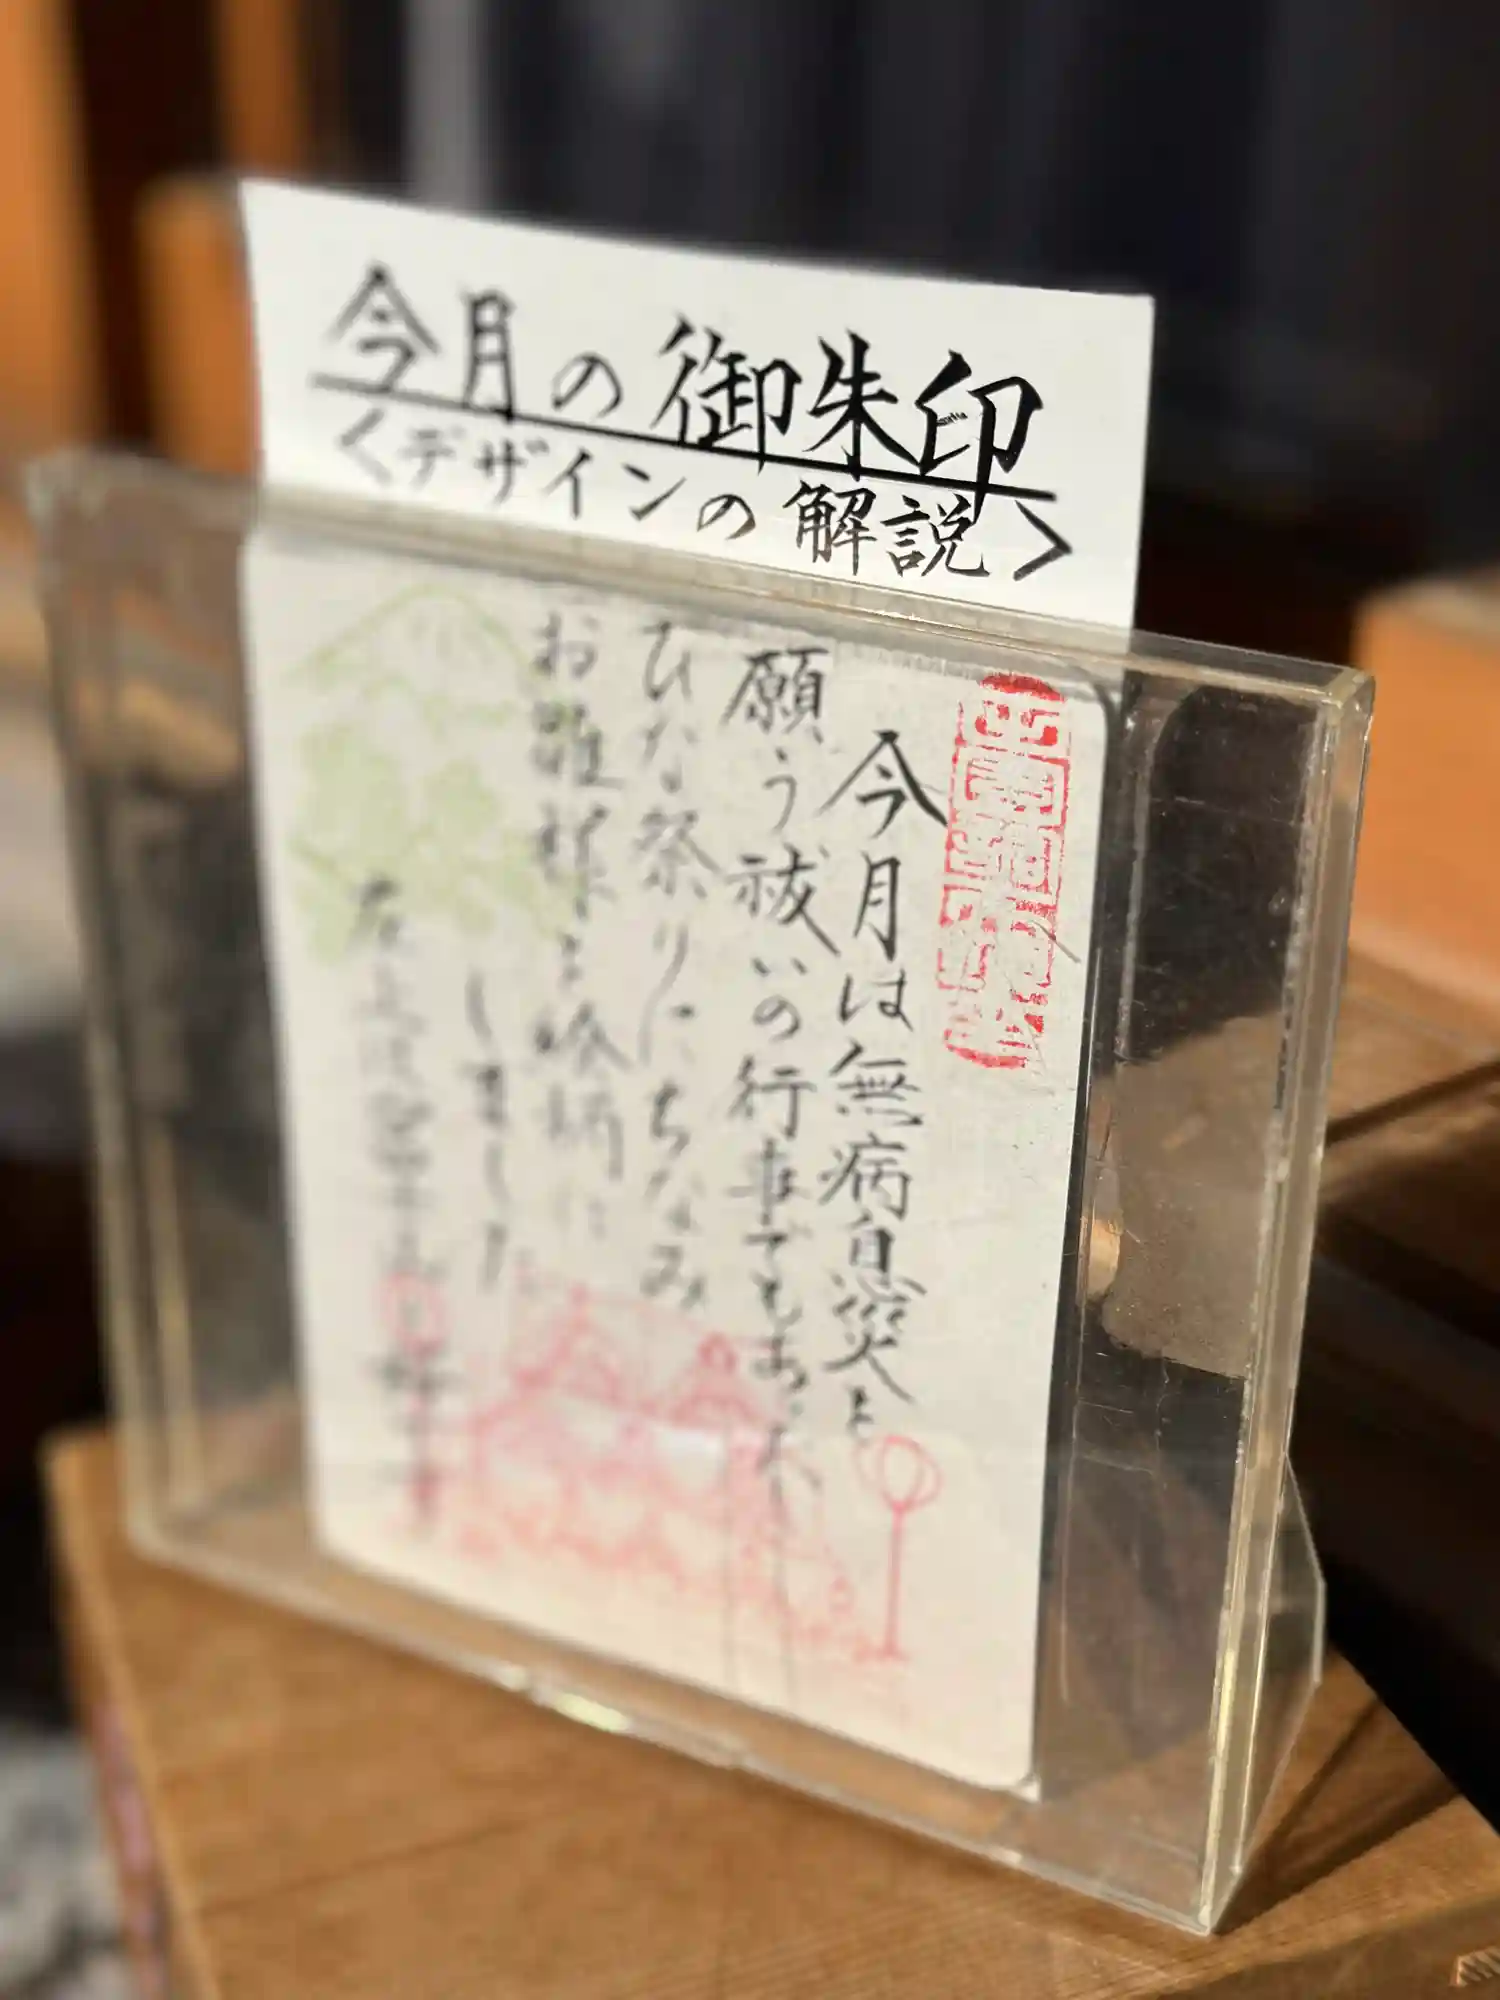 今月の御朱印
<デザインの解説>
今月は無病息災を
願う祓いの行事でもあった
ひな祭りにちなみ
お雛様を絵柄に
しました